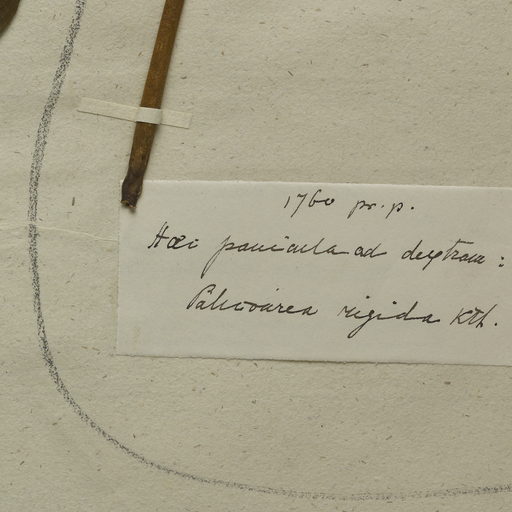 1760 pr. p.
Haec panicula ad dextram:
Palicourea rigida Kth.